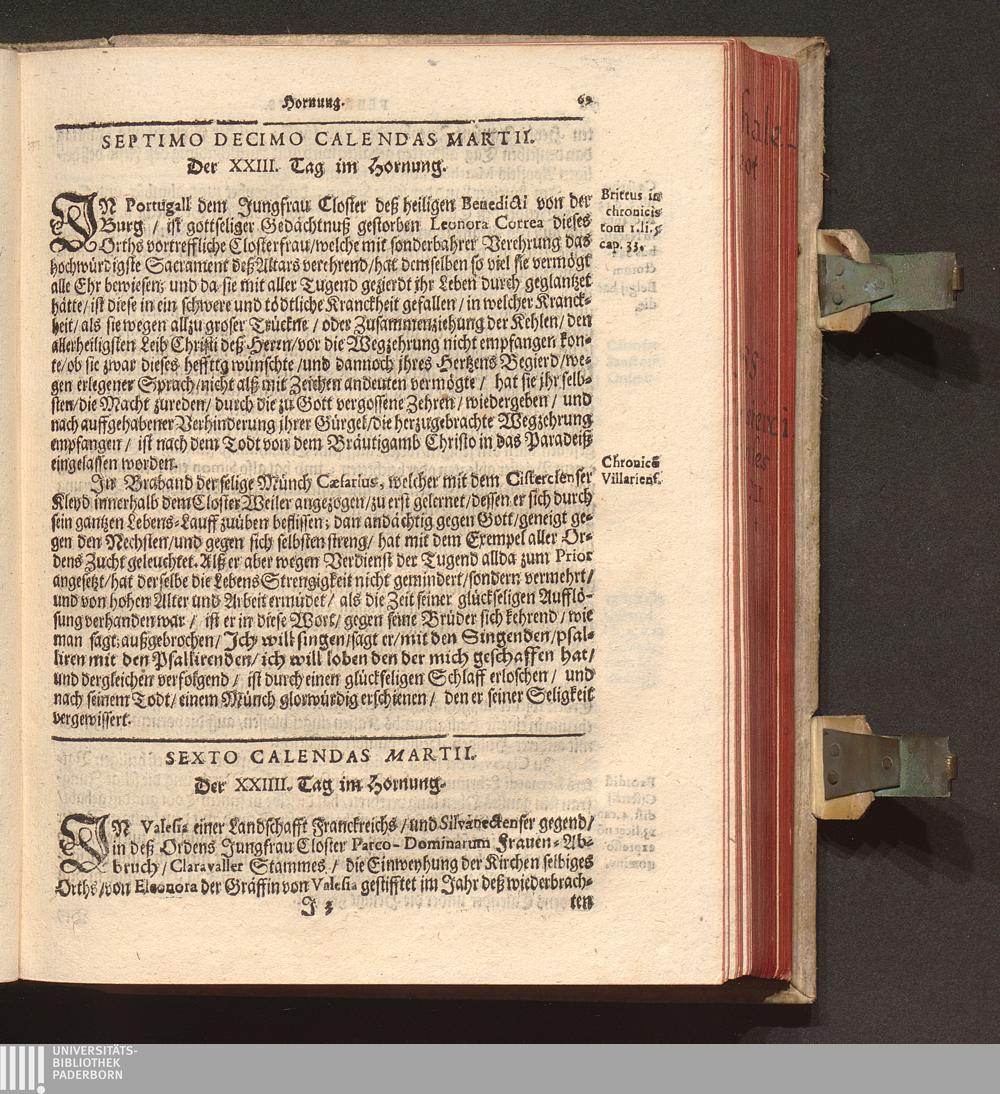 Hornung.
69
SEPTIMO DECIMO CALENDAS MARTII.
Der XXIII. Tag im Hornung.
IN Portugall dem Jungfrau Closter deß heiligen Benedicti von der
Burg / ist gottseliger Gedächtnuß gestorben Leonora Correa dieses
Orths vortreffliche Closterfrau/welche mit sonderbahrer Verehrung das
hochwürdigste Sacrament deß Altars verehrend/hat demselben so viel sie vermögt
alle Ehr bewiesen; und da sie mit aller Tugend gezierdt ihr Leben durch geglantzet
hätte/ist diese in ein schwere und tödtliche Kranckheit gefallen / in welcher Kranck-
heit/als sie wegen allzu groser Trückne / oder Zusammenziehung der Kehlen/den
allerheiligsten Leib Christi deß Herrn/vor die Wegzehrung nicht empfangen kon-
te/ob sie zwar dieses hefftig wünschte/und dannoch ihres Hertzens Begierd/we-
gen erlegener Sprach/nicht alß mit Zeichen andeuten vermögte / hat sie ihr selb-
sten/die Macht zureden/durch die zu Gott vergossene Zehren/wiedergeben/ und
nach auffgehabener Verhinderung ihrer Gürgel/die herzugebrachte Wegzehrung
empfangen / ist nach dem Todt von dem Bräutigamb Christo in das Paradeiß
eingelassen worden.
Brittus in
chronicis
tom 1.li.5
cap. 33.
In Braband der selige Münch Cæsarius, welcher mit dem Cistercienser
Kleyd innerhalb dem Closter Weiler angezogen/zu erst gelernet/dessen er sich durch
sein gantzen Lebens-Lauff zuüben beflissen; dan andächtig gegen Gott/geneigt ge-
gen den Nechsten/und gegen sich selbsten streng/hat mit dem Exempel aller Or-
dens Zucht geleuchtet. Alß er aber wegen Verdienst der Tugend allda zum Prior
angesetzt/hat derselbe die Lebens Strengigkeit nicht gemindert/sondern vermehrt/
und von hohen Alter und Arbeit ermüdet / als die Zeit seiner glückseligen Aufflö-
sung verhanden war / ist er in diese Wort/gegen seine Brüder sich kehrend/ wie
man sagt; außgebrochen / Ich will singen/sagt er/mit den Singenden/psal-
liren mit den Psallirenden/ich will loben den der mich geschaffen hat/
und dergleichen verfolgend / ist durch einen glückseligen Schlaff erloschen/ und
nach seinem Todt/einem Münch glorwürdig erschienen / den er seiner Seligkeit
vergewissert.
Chronicō
Villariens.
SEXTO CALENDAS MARTII.
Der XXIIII. Tag im Hornung.
IN Valesia einer Landschafft Franckreichs/und Silvanectenser gegend/
in deß Ordens Jungfrau Closter Parco-Dominarum Frauen-Ab-
bruch/Claravaller Stammes / die Einweyhung der Kirchen selbiges
Orths/von Eleonora der Gräffin von Valesia gestifftet im Jahr deß wiederbrach-
J 3
ten
UNIVERSITÄTS-
BIBLIOTHEK
PADERBORN